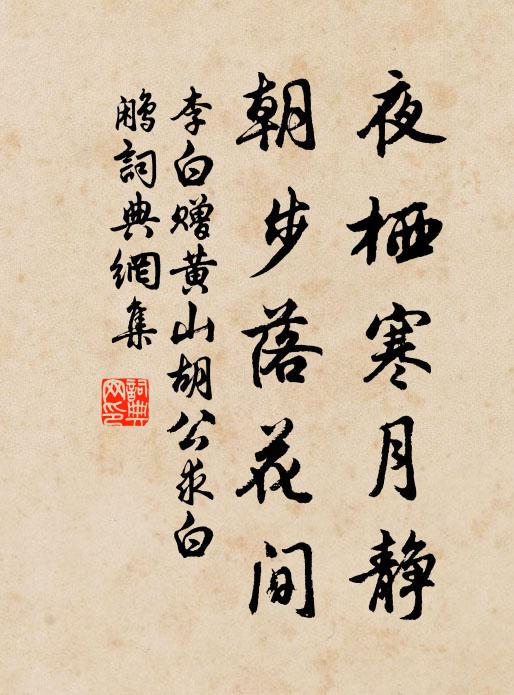 夜栖寒月静
朝步落花间
李白赠黄山胡公求白
鹇詞典網集
詞典
网印